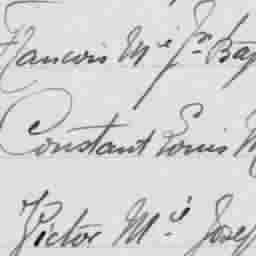 Francois Mie Jn Bap
Constant Louis M
Victor Mie Josep